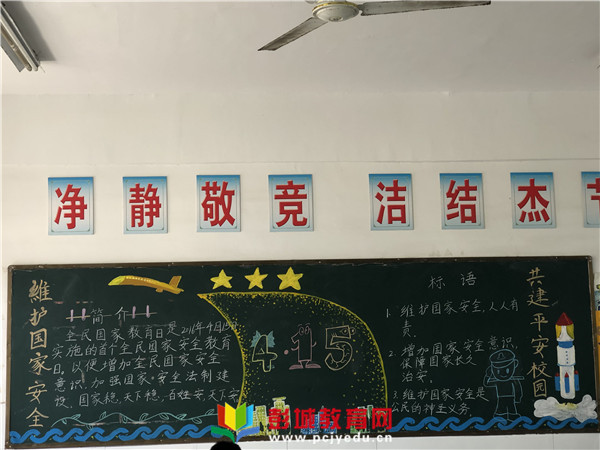 净 静 敬 竞 洁 结 杰
維护国家安全
简介
全民国家教育日是2016年4月15日
实施的首个全民国家安全教育
日,以便增加全民国家安全
意识,加强国家安全法制建
设,国家稳,天下稳,百姓安天下安
4·15
标语
1. 维护国家安全,人人有
责
2. 增加国家安全意识,
保障国家长久
治安.
3. 维护国家安全是
公民的神圣义务.
共建平安校园
彭城教育网
www.pcjyedu.cn